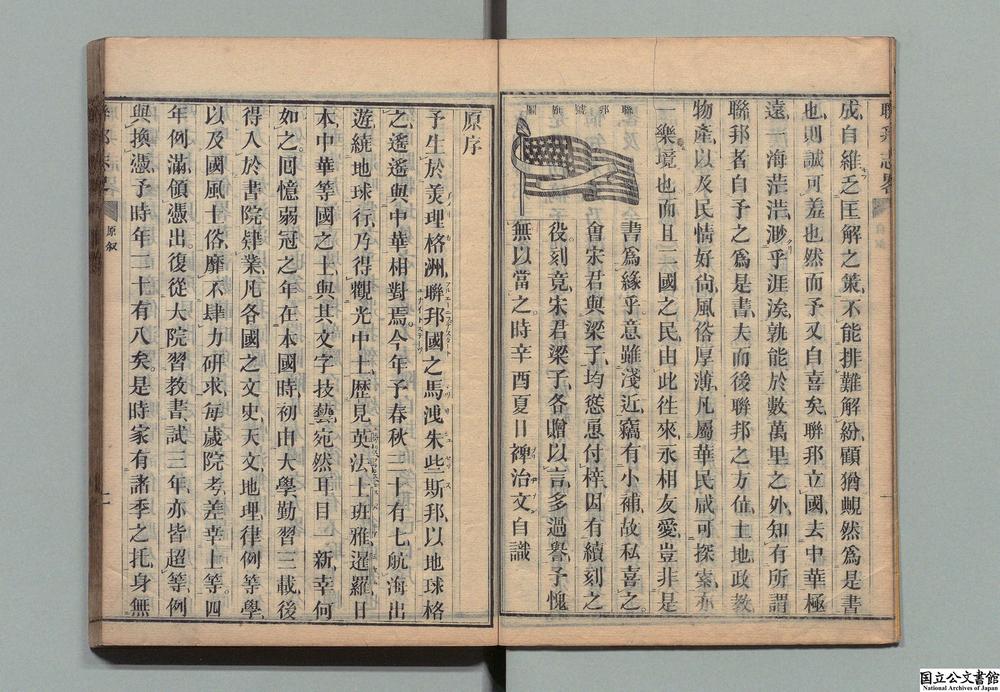 聯邦志畧
成自維乏匡解之策不能排難解紛顧猶覥然爲是書
也則誠可羞也然而予又自喜矣聯邦立國去中華極
遠一海茫茫渺乎涯涘孰能於數萬里之外知有所謂
聯邦者自予之爲是書夫而後聯邦之方位土地政教
物產以及民情好尙風俗厚薄凡屬華民咸可探索亦
一樂境也而且三國之民由此往來永相友愛豈非是
聯邦號旂圖
書爲緣乎意雖淺近竊有小補故私喜之
會宋君與梁子均慫恿付梓因有續刻之
役刻竟宋君梁子各贈以言多過譽予愧
無以當之時辛酉夏日裨治文自識
原序
予生於美理格洲聯邦國之馬洩朱些斯邦以地球格
之遙遙與中華相對焉今年予春秋三十有七航海出
遊繞地球行乃得觀光中土歷見英法士班雅暹羅日
本中華等國之士與其文字技藝宛然耳目一新幸何
如之回憶弱冠之年在本國時初由大學勤習三載後
得入於書院肄業凡各國之文史天文地理律例等學
以及國風土俗靡不肆力研求每歲院考差幸上等四
年例滿領憑出復從大院習教書試三年亦皆超等例
與換憑予時年二十有八矣是時家有諸季之托身無
聯邦志畧
原敘